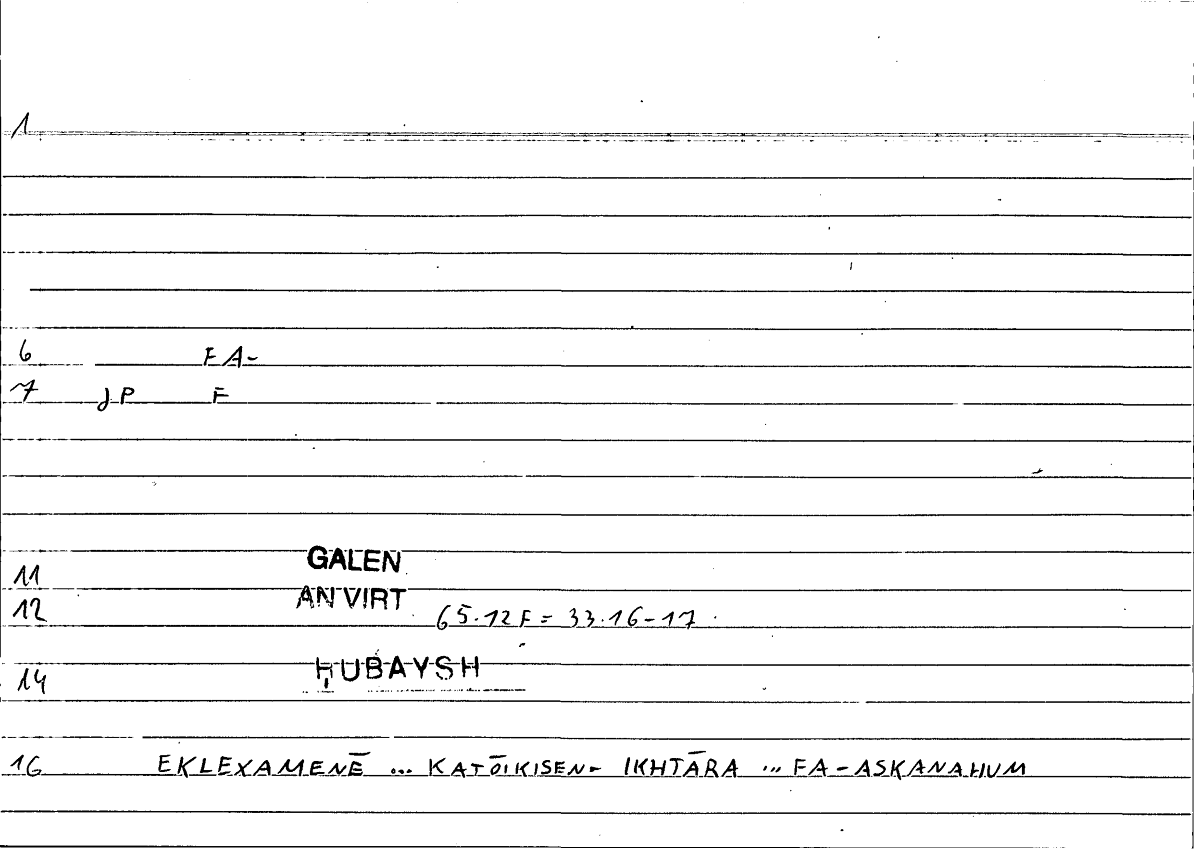 1
6 FA-
7 JP F
11 GALEN
12 AN VIRT 65.12 F = 33.16-17
14 ḤUBAYSH
16 EKLEXAMENĒ ... KATŌIKISEN - IKHTĀRA ... FA-ASKANAHUM